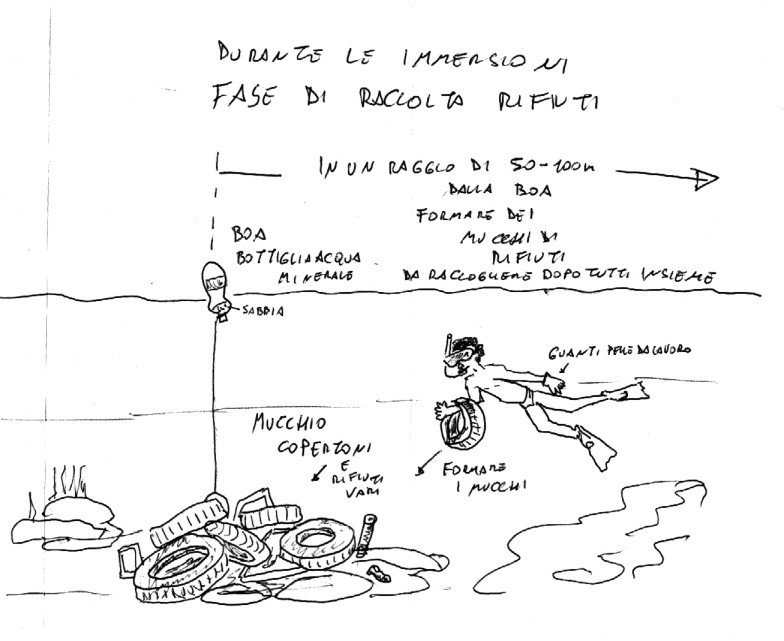 DURANTE LE IMMERSIONI
FASE DI RACCOLTA RIFIUTI
IN UN RAGGIO DI 50-100m
DALLA BOA
FORMARE DEI
MUCCHI DI
RIFIUTI
DA RACCOGLIERE DOPO TUTTI INSIEME
BOA
BOTTIGLIA ACQUA
MINERALE
SABBIA
GUANTI PELLE DA LAVORO
MUCCHIO
COPERTONI
E
RIFIUTI
VARI
FORMARE
I MUCCHI